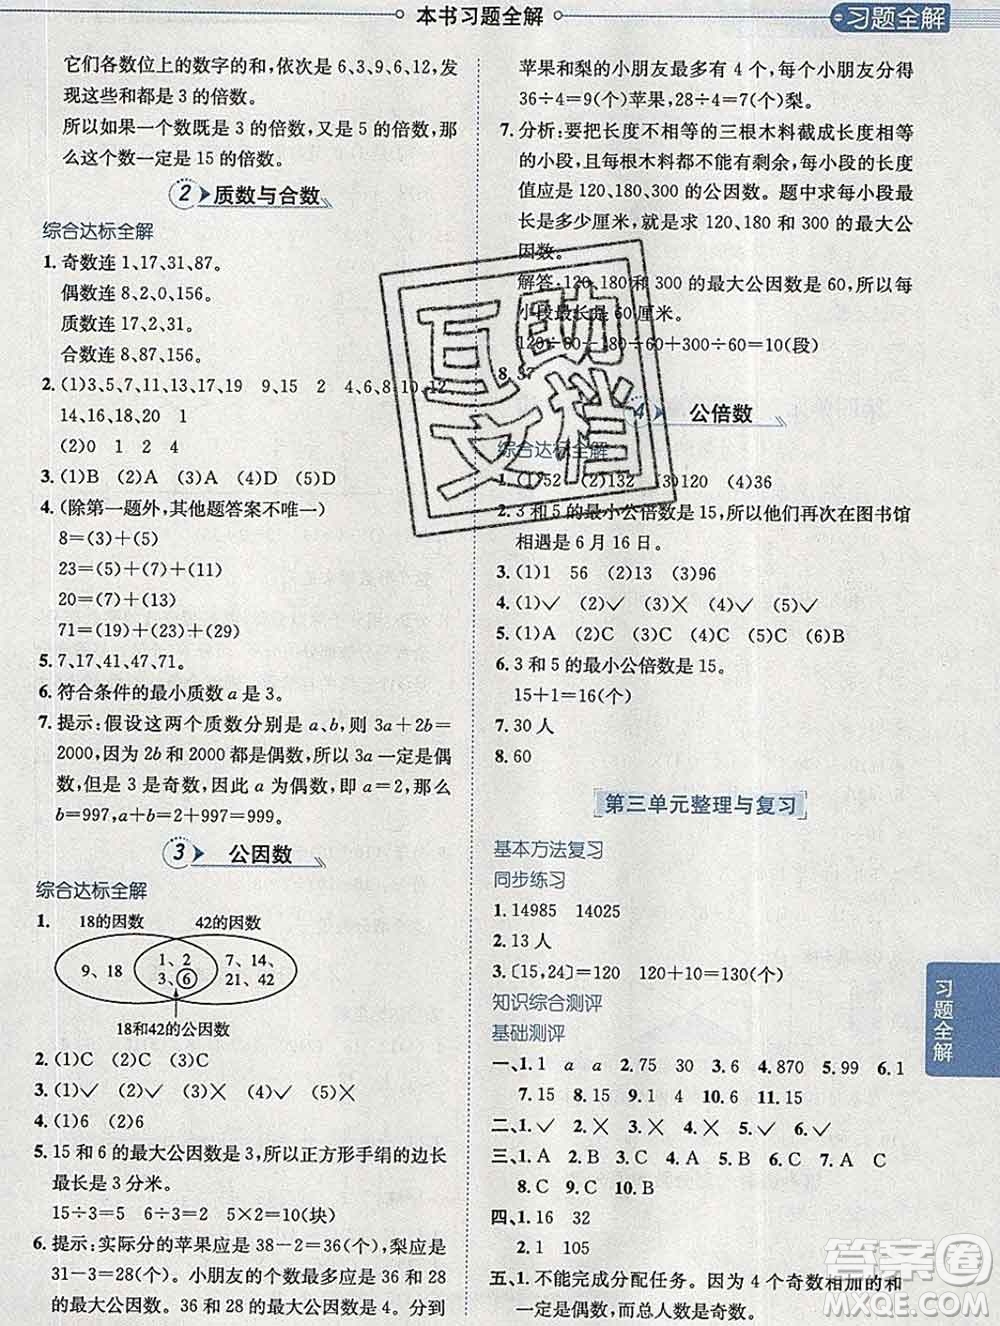 本书习题全解
习题全解
它们各数位上的数字的和,依次是 6、3、9、6、12,发
现这些和都是 3 的倍数。
所以如果一个数既是 3 的倍数,又是 5 的倍数,那
么这个数一定是 15 的倍数。
2 质数与合数
综合达标全解
1. 奇数连 1、17、31、87。
偶数连 8、2、0、156。
质数连 17、2、31。
合数连 8、87、156。
2. (1)3、5、7、11、13、17、19 9、15 2 4、6、8、10、12、
14、16、18、20 1
(2)0 1 2 4
3. (1)B (2)A (3)A (4)D (5)D
4. (除第一题外,其他题答案不唯一)
8=(3)+(5)
23=(5)+(7)+(11)
20=(7)+(13)
71=(19)+(23)+(29)
5. 7、17、41、47、71。
6. 符合条件的最小质数 a 是 3。
7. 提示:假设这两个质数分别是 a、b,则 3a+2b=
2000,因为 2b 和 2000 都是偶数,所以 3a 一定是偶
数,但是 3 是奇数,因此 a 为偶数,即 a=2,那么
b=997,a+b=2+997=999。
3 公因数
综合达标全解
1. 18的因数 42的因数
9、18 1、2 3、6 7、14、 21、42
18和42的公因数
2. (1)C (2)C (3)C
3. (1)✓ (2)✓ (3)✓ (4)✓
4. (1)6 (2)6
5. 15 和 6 的最大公因数是 3,所以正方形手绢的边长
最长是 3 分米。
15÷3=5 6÷3=2 5×2=10(块)
6. 提示:实际分的苹果应是 38-2=36(个),梨应是
31-3=28(个)。小朋友的个数最多应是 36 和 28
的最大公因数。36 和 28 的最大公因数是 4。分到
苹果和梨的小朋友最多有 4 个,每个小朋友分得
36÷4=9(个)苹果,28÷4=7(个)梨。
7. 分析:要把长度不相等的三根木料截成长度相等
的小段,且每根木料都不能有剩余,每小段的长度
值应是 120、180、300 的公因数。题中求每小段最
长是多少厘米,就是求 120、180 和 300 的最大公
因数。
解答:120、180 和 300 的最大公因数是 60,所以每
小段最长是 60 厘米。
120÷60+180÷60+300÷60=10(段)
8.
4 公倍数
综合达标全解
1. (1)52 (2)132 (3)120 (4)36
2. 3 和 5 的最小公倍数是 15,所以他们再次在图书馆
相遇是 6 月 16 日。
3. (1)1 56 (2)13 (3)96
4. (1)✓ (2)✓ (3)✕ (4)✕ (5)✓
5. (1)A (2)C (3)C (4)B
6. 3 和 5 的最小公倍数是 15。
15+1=16(个)
7. 30 人
8. 60
第三单元整理与复习
基本方法复习
同步练习
1. 14985 14025
2. 13 人
3. [15,24]=120 120+10=130(个)
知识综合测评
基础测评
一、1. 1 a a 2. 75 30 3. 6 4. 870 5. 99 6. 1
7. 15 8. 15 9. 1 4 10. 15
二、1. ✓ 2. ✕ 3. ✕ 4. ✓ 5. ✓ 6. ✕
三、1. A 2. B 3. C 4. C 5. B 6. C 7. A C
8. C 9. C 10. B
四、1. 16 32
2. 1 105
五、1. 不能完成分配任务。因为 4 个奇数相加的和
一定是偶数,而总人数是奇数。
习题全解
互助
文档
答案圈
MXQE.COM